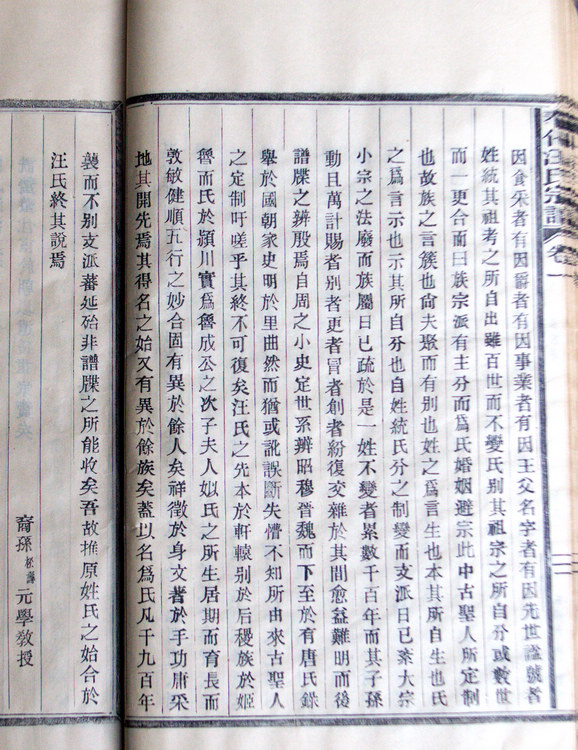 汪氏宗譜 卷一
因食采者有因爵者有因事業者有因王父名字者有因先世諡號者
姓統其祖考之所自出雖百世而不變氏別其祖宗之所自分或數世
而一更合而曰族宗派有主分而爲氏婚姻避宗此中古聖人所定制
也故族之言簇也尙夫聚而有別也姓之爲言生也本其所自生也氏
之爲言示也示其所自分也自姓統氏分之制變而支派日已紊大宗
小宗之法廢而族屬日已疏於是一姓不變者累數千百年而其子孫
動且萬計賜者別者更者冒者創者紛復交雜於其間愈益難明而後
譜牒之辨殷焉自周之小史定世系辨昭穆晉魏而下至於有唐氏錄
舉於國朝家史明於里曲然而猶或訛誤斷失懵不知所由來古聖人
之定制吁嗟乎其終不可復矣汪氏之先本於軒轅別於后稷族於姬
魯而氏於潁川實爲魯成公之次子夫人姒氏之所生居期而育長而
敦敏健順五行之妙合固有異於餘人矣祥徵於身文著於手功庸采
地其開先焉其得名之始又有異於餘族矣蓋以名爲氏凡千九百年
襲而不別支派蕃延殆非譜牒之所能收矣吾故推原姓氏之始合於
汪氏終其說焉
裔孫松壽元學敎授